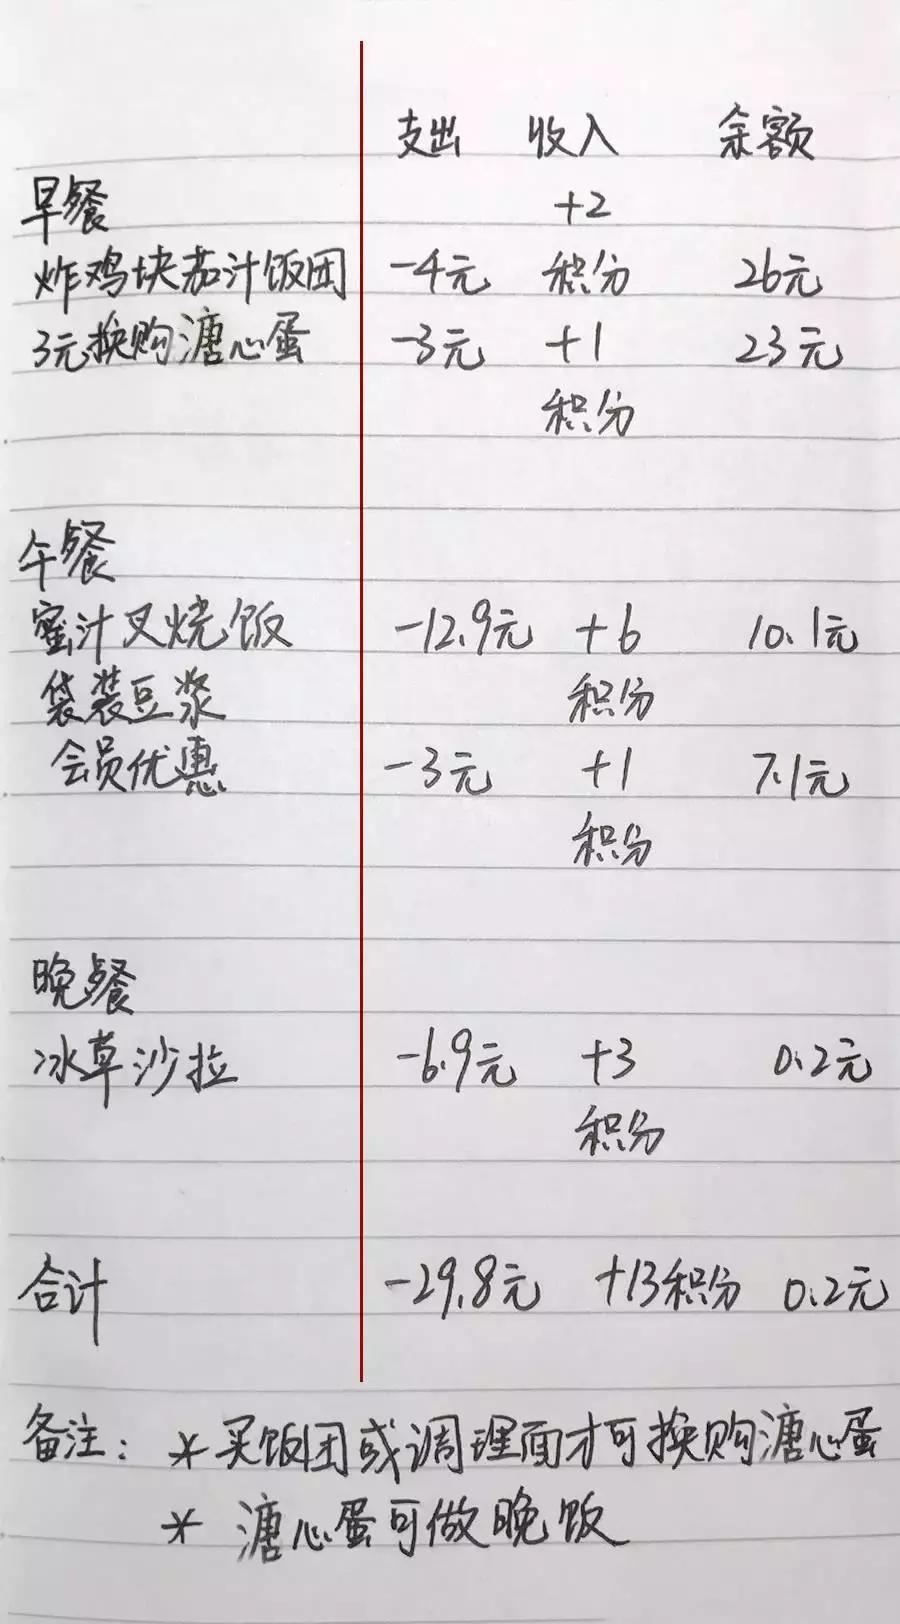 支出 收入 余额
早餐 +2
炸鸡块茄汁饭团 -4元 积分 26元
3元换购溏心蛋 -3元 +1 23元
积分
午餐
蜜汁叉烧饭 -12.9元 +6 10.1元
袋装豆浆 积分
会员优惠 -3元 +1 7.1元
积分
晚餐
冰草沙拉 -6.9元 +3 0.2元
积分
合计 -29.8元 +13积分 0.2元
备注: *买饭团或调理面才可换购溏心蛋
* 溏心蛋可做晚饭